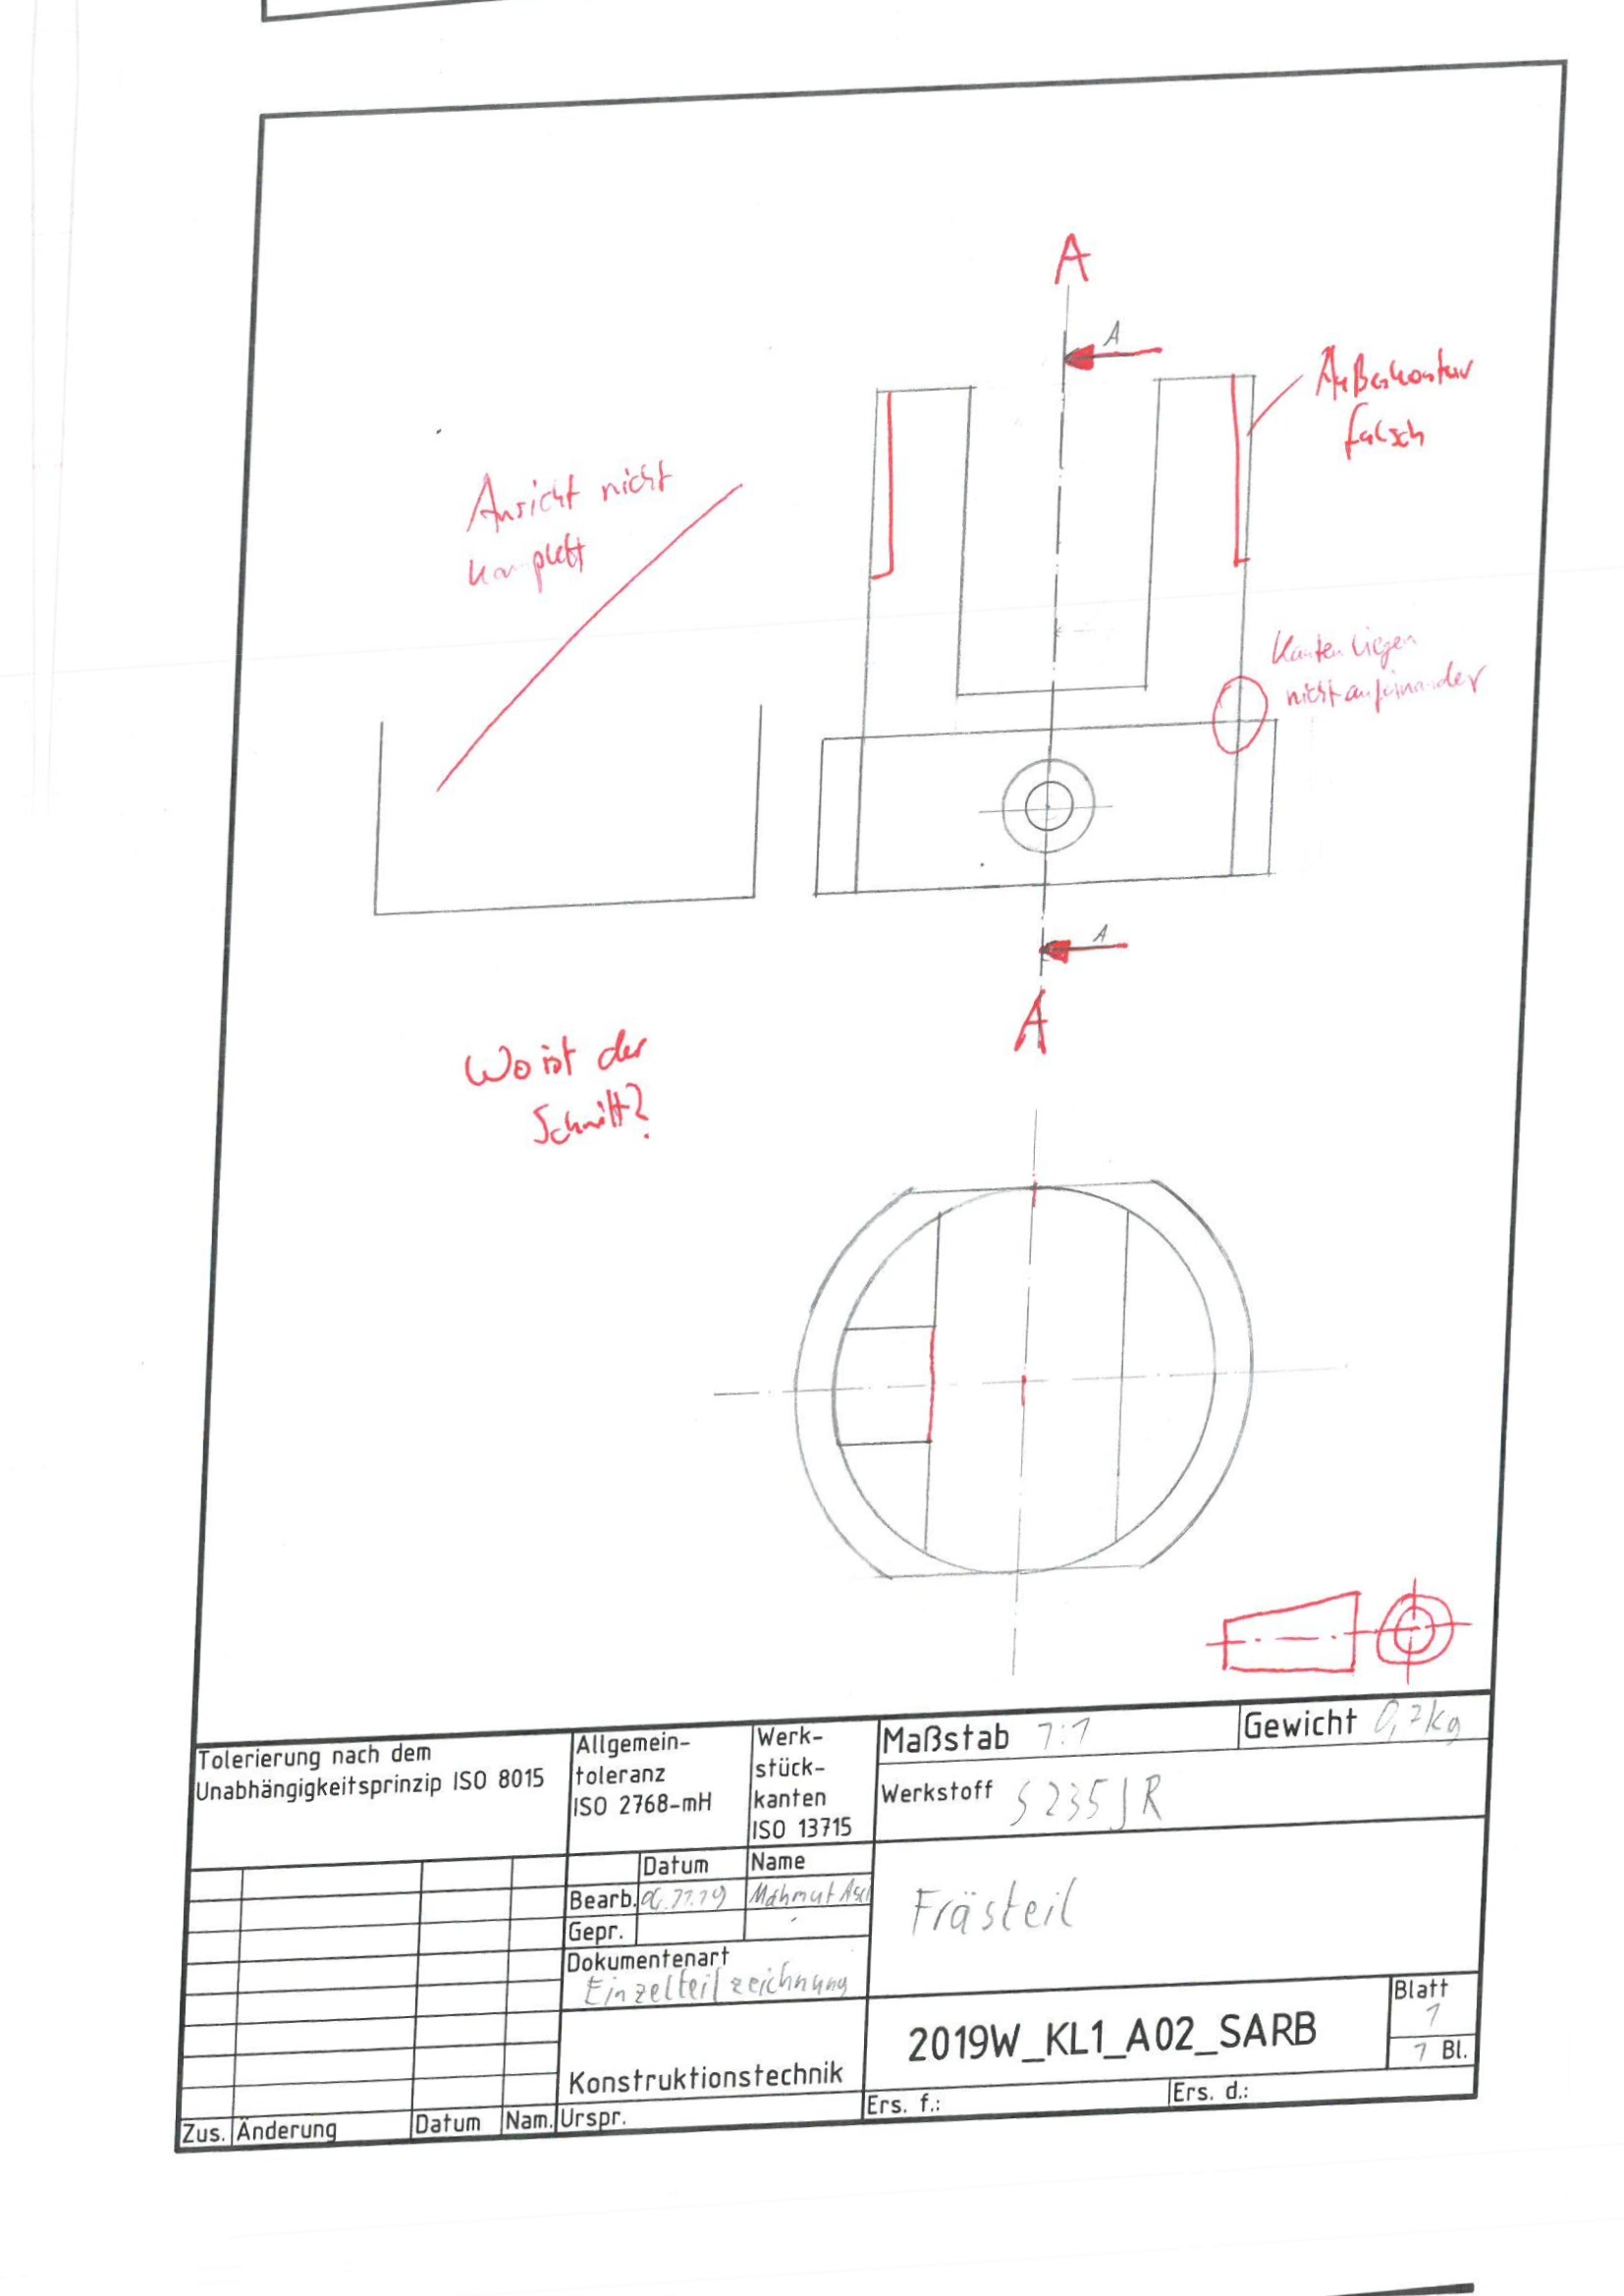 A
A
Außenkontur
falsch
Ansicht nicht
komplett
Kanten liegen
nicht aufeinander
A
A
Wo ist der
Schnitt?
Tolerierung nach dem
Unabhängigkeitsprinzip ISO 8015
Allgemein-
toleranz
ISO 2768-mH
Werk-
stück-
kanten
ISO 13715
Maßstab 1:1
Gewicht 0,7kg
Werkstoff S235JR
Datum
Name
Bearb. 06.11.19 Mahmut
Gepr.
Dokumentenart
Einzelteilzeichnung
Frästeil
Konstruktionstechnik
2019W_KL1_A02_SARB
Blatt
1
1 Bl.
Zus. Änderung Datum Nam. Urspr.
Ers. f.:
Ers. d.: